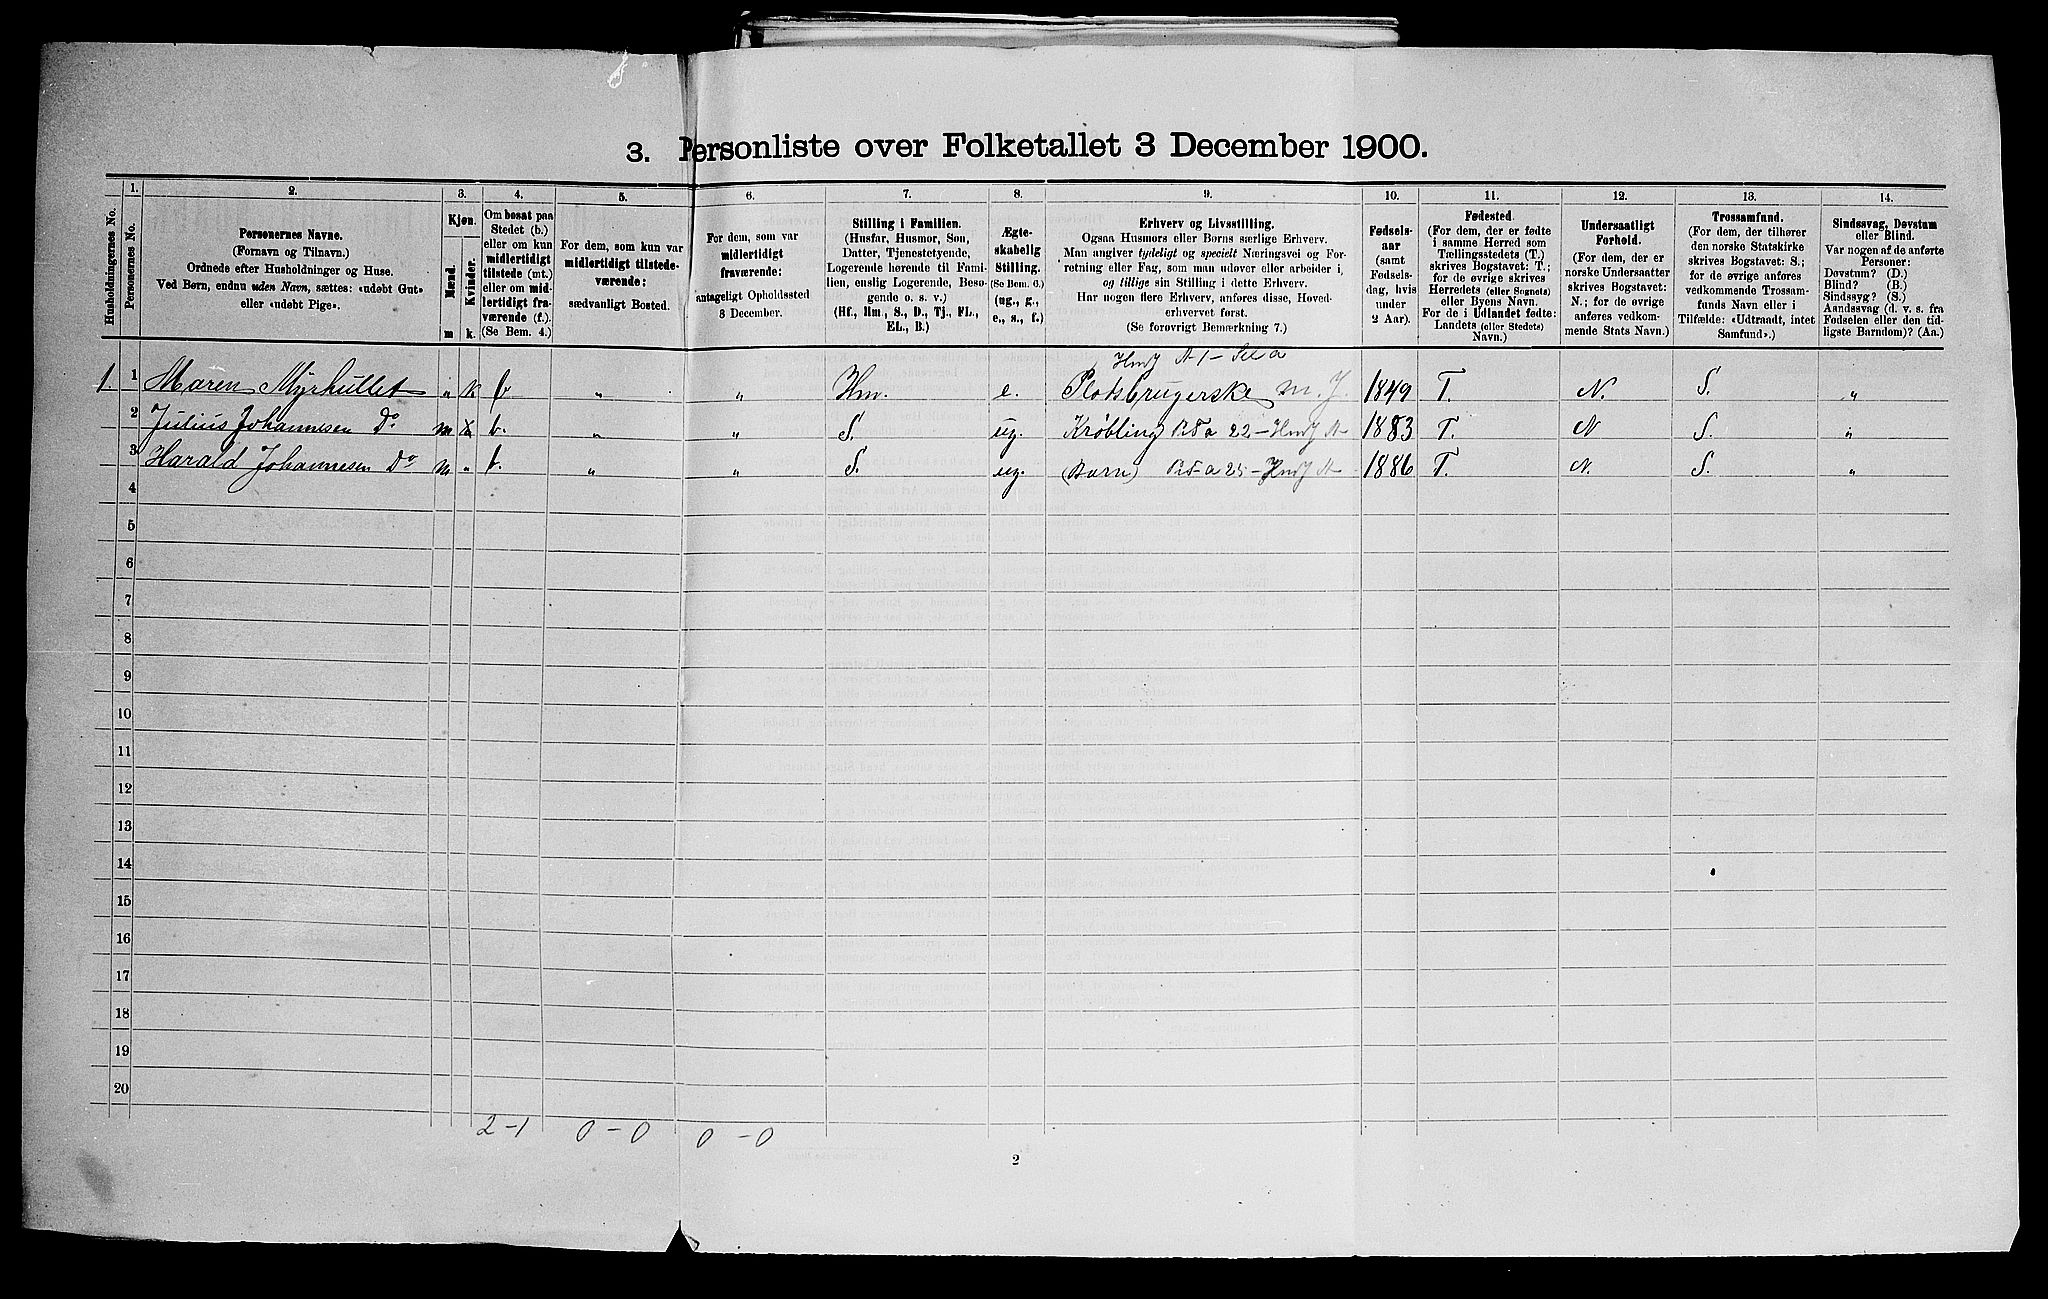 3. Personliste over Folketallet 3 December 1900.
Husholdningernes No.
1.
Personernes No.
2.
Personernes Navne.
(Fornavn og Tilnavn.)
Ordnede efter Husholdninger og Huse.
Ved Børn, endnu uden Navn, sættes: «udøbt Gut»
eller «udøbt Pige».
3.
Kjøn.
Mænd.
Kvinder.
m
k.
4.
Om bosat paa
Stedet (b.)
eller om kun
midlertidigt
tilstede (mt.)
eller om mid-
lertidigt fra-
værende (f.).
(Se Bem. 4.)
5.
For dem, som kun var
midlertidigt tilstede-
værende:
sædvanligt Bosted.
6.
For dem, som var
midlertidigt
fraværende:
antageligt Opholdssted
3 December.
7.
Stilling i Familien.
(Husfar, Husmor, Søn,
Datter, Tjenestetyende,
Logerende hørende til Fami-
lien, enslig Logerende, Besø-
gende o. s. v.)
(Hf., Hm., S., D., Tj., FL.,
EL., B.)
8.
Ægte-
skabelig
Stilling.
(Se Bem. 6.)
(ug., g.,
e., s., f.)
9.
Erhverv og Livsstilling.
Ogsaa Husmors eller Børns særlige Erhverv.
Man angiver tydeligt og specielt Næringsvei og For-
retning eller Fag, som man udøver eller arbeider i,
og tillige sin Stilling i dette Erhverv.
Har nogen flere Erhverv, anføres disse, Hoved-
erhvervet først.
(Se forøvrigt Bemærkning 7.)
10.
Fødsels-
aar
(samt
Fødsels-
dag, hvis
under
2 Aar).
11.
Fødested.
(For dem, der er fødte
i samme Herred som
Tællingsstedets (T.)
skrives Bogstavet: T.;
for de øvrige skrives
Herredets (eller Sognets)
eller Byens Navn.
For de i Udlandet fødte:
Landets (eller Stedets)
Navn.)
12.
Undersaatligt
Forhold.
(For dem, der er
norske Undersaatter
skrives Bogstavet:
N.; for de øvrige
anføres vedkom-
mende Stats Navn.)
13.
Trossamfund.
(For dem, der tilhører
den norske Statskirke
skrives Bogstavet: S.;
for de øvrige anføres
vedkommende Trossam-
funds Navn eller i
Tilfælde: «Udtraadt, intet
Samfund».)
14.
Sindssvag, Døvstum
eller Blind.
Var nogen af de anførte
Personer:
Døvstum? (D.)
Blind? (B.)
Sindssyg? (S.)
Aandssvag (d. v. s. fra
Fødselen eller den tid-
ligste Barndom)? (Aa.)
1. 1 Maren Myrhullet „ k b „ „ Hm. e. Pladsbrugerske m. J. 1849 T. N. S. „
2 Julius Johannesen Do m b. „ „ S. ug. 1883 T. N S. „
3 Harald Johannesen Do m „ b. „ „ S. ug. (Barn) 1886 T. N. S. „
4
5
6
7
8
9
10
11
12
13
14
15
16
17
18
19
20
2-1 0-0 0-0
2